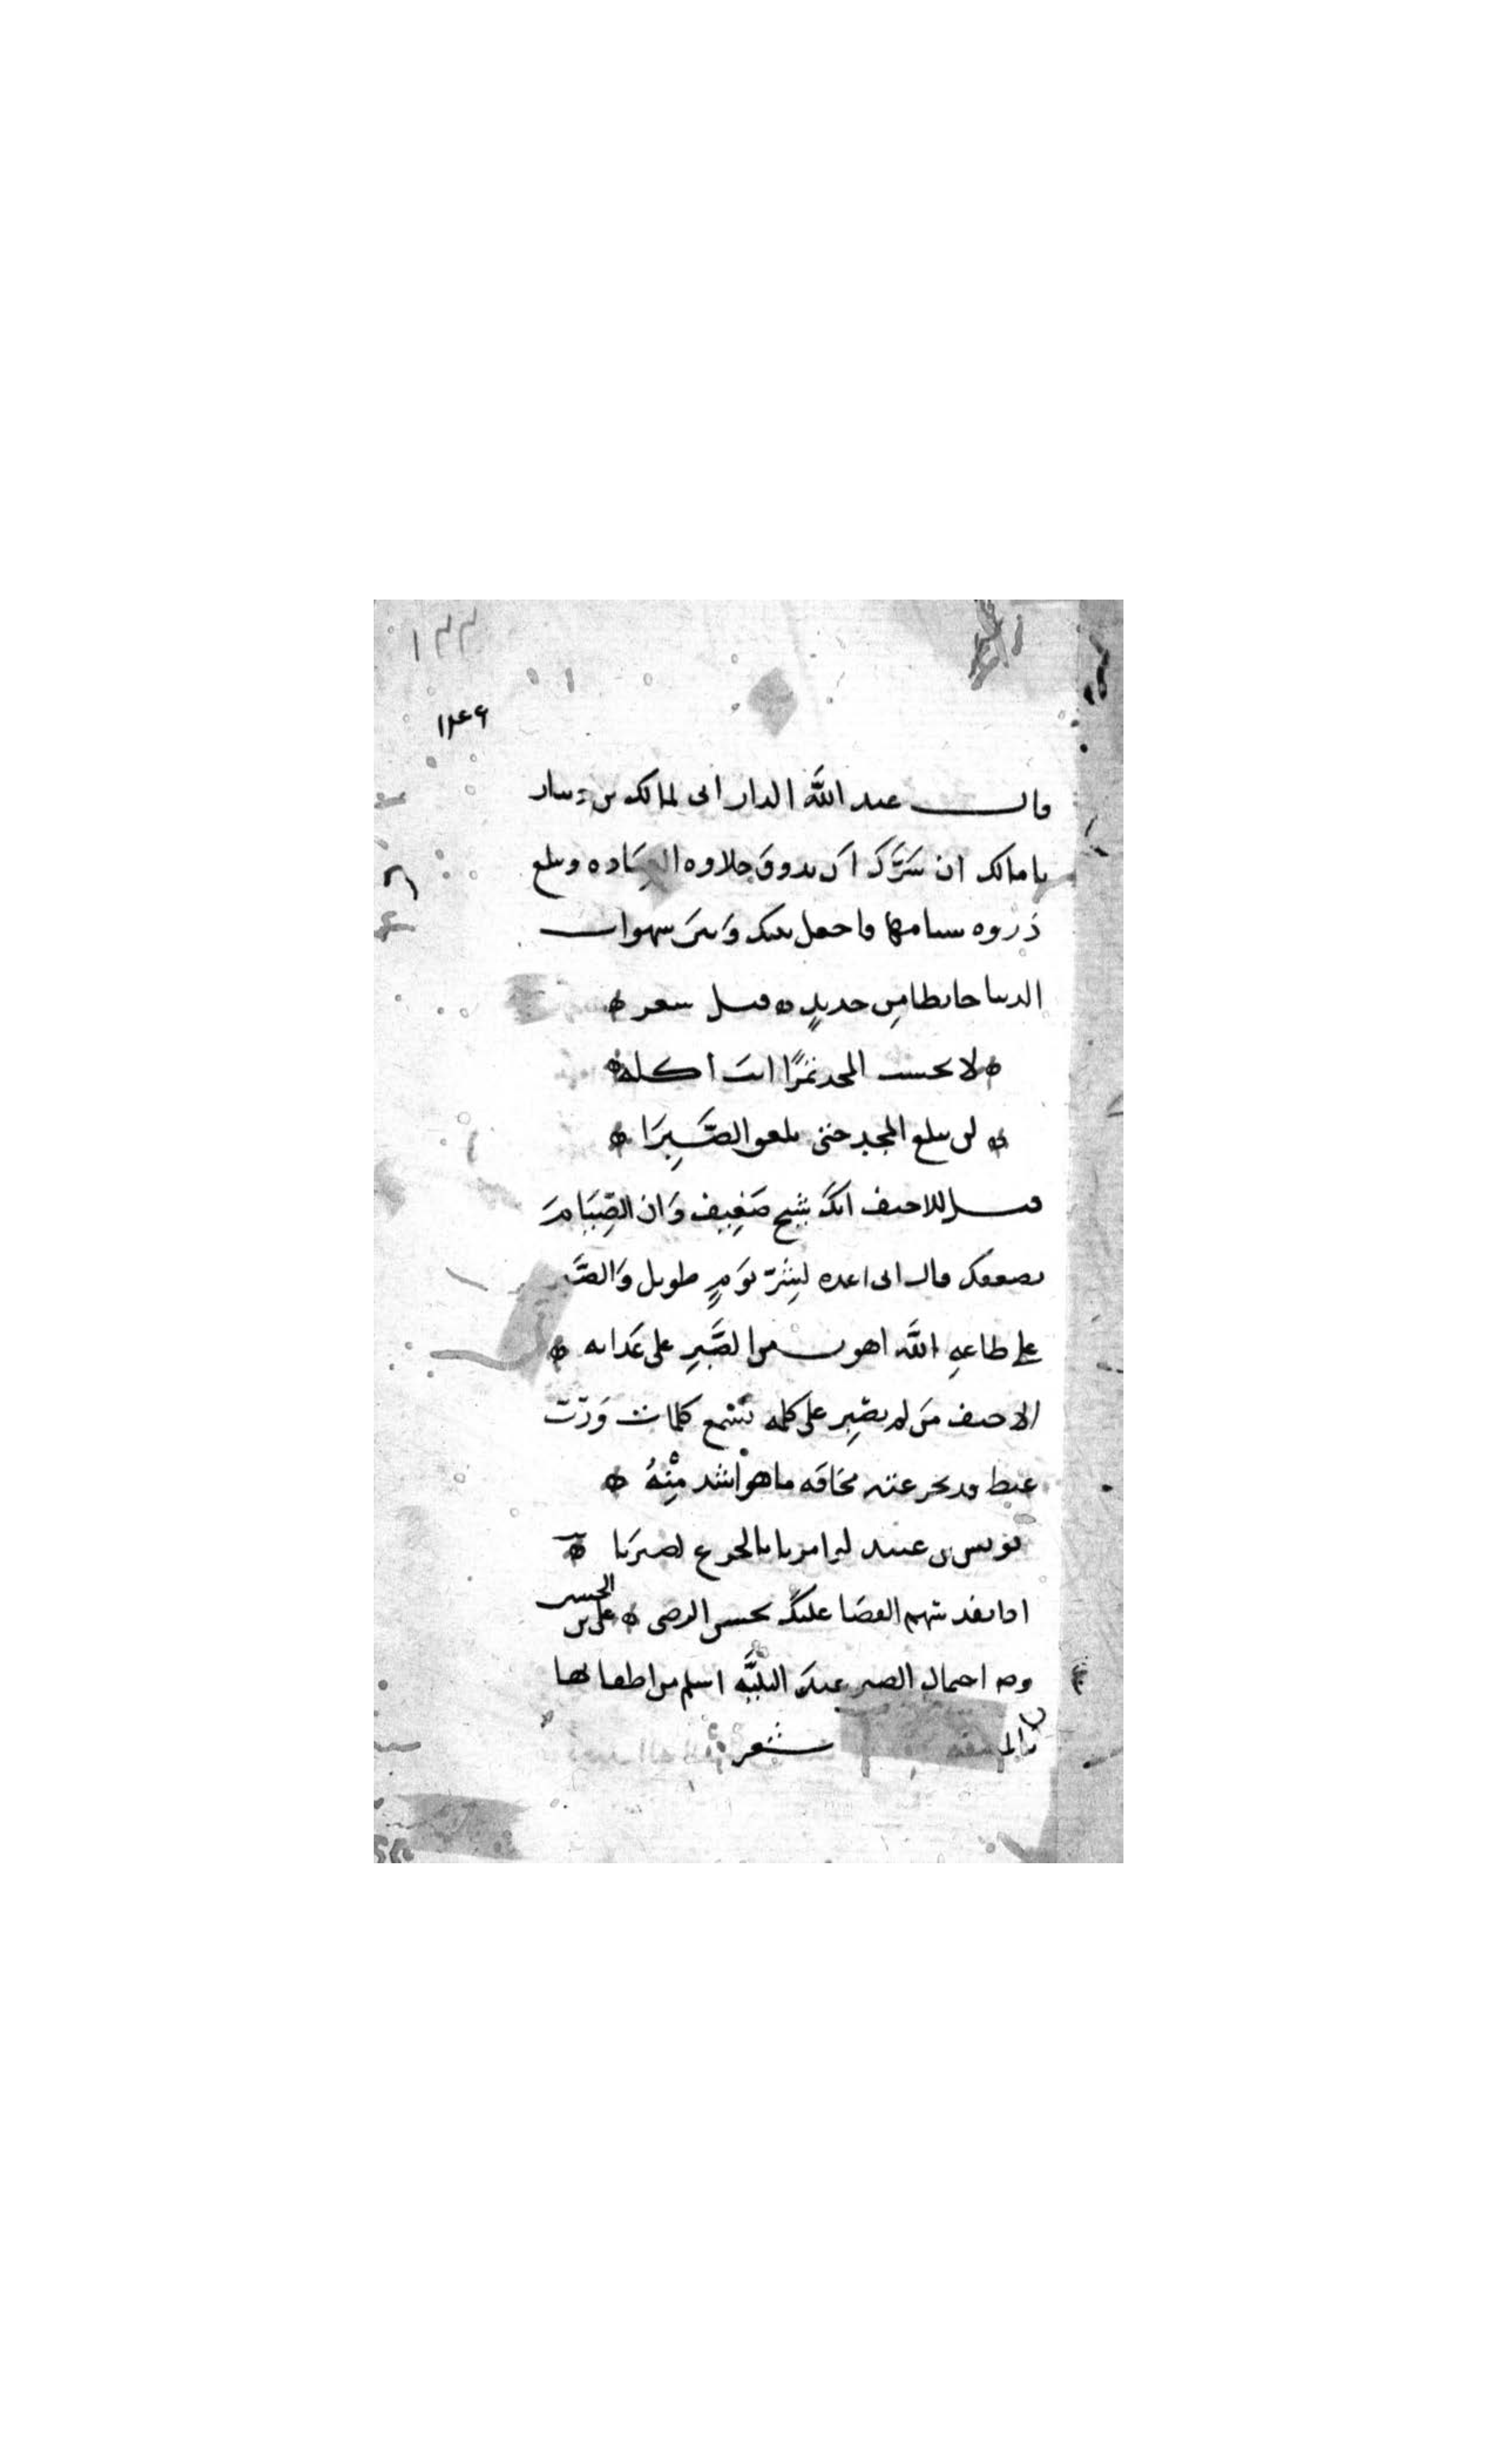 ١٣٣
١٤٤
قال عبد الله الداراني لمالك بن دينار
يا مالك ان سَرَّكَ اَن تذوقَ حلاوه العبَاده وتبلغ
ذروه سنامها فاجعل بينك وَبينَ شهوات
الدنيا حايطا مِن حديدٍ ۞ قيل شعر ۞
۞ لا تحسب المجد تمرًا انتَ اكله ۞
۞ لن تبلغ المجد حتى تلعق الصَّبِرَا ۞
قيل للاحنف انكَ شيخ ضَعِيف وَان الصِّيَامَ
يضعفك قال اني اعده لِشَرّ يَومٍ طويل وَالصَّبر
على طاعهِ اللَّه اهون من الصَّبرِ على عَذابه ۞
الاحنف مَن لم يصْبِر على كلمه يَسْمع كلمات وَرُبّ
غيظ قد تجرعته مخَافَه ما هو اَشد مِنْهُ ۞
يونس بن عبيد لو امرنا بالجزع لصبرَنا ۞
اذا نفد سهم القضَا عليكَ بحسن الرضى ۞ على بن
الحسين
وجه احمال الصبر عندَ البليَّه اسلم من اطفائها
شعر